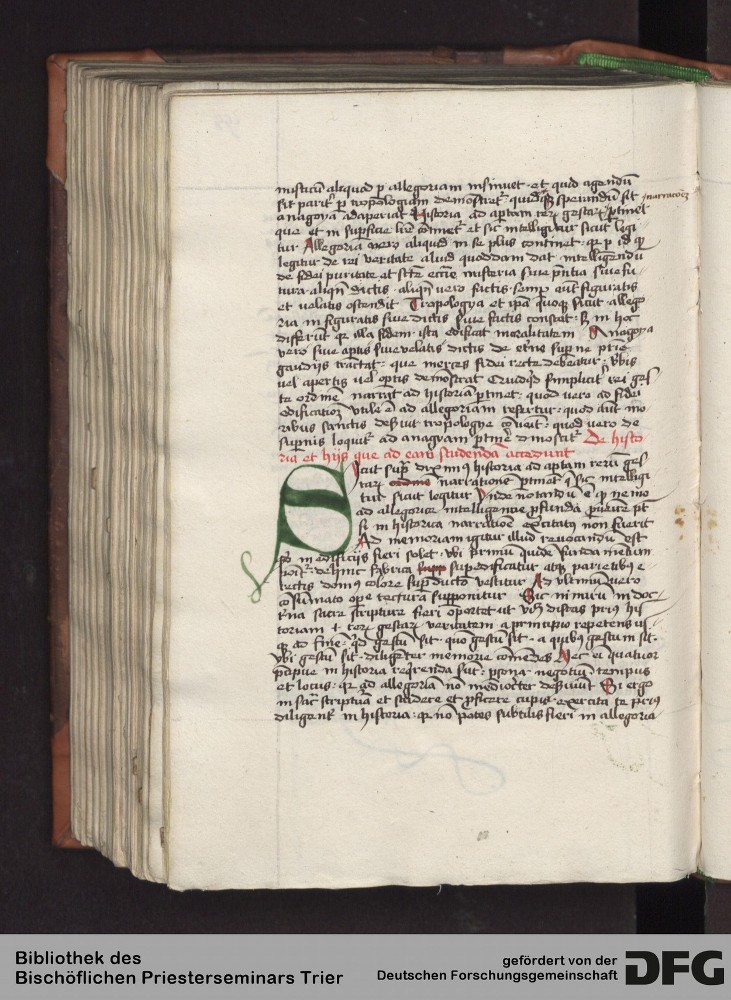 misticū aliquod p allegoriam insinuet · et quid agendū
sit parit p tropologiam demonstret · quidqz sperandum sit
anagoya adaperiat Historia ad aptam rerz gestarz ptinet
narracoez
que et in supficie lre continet et sic intelligitur sicut legi
tur Allegoria vero aliquid in se plus continet · qz p id qd
legitur de rei veritate aliud quoddam dat intelligendu
de fidei puritate et scte eccie misteria sive pntia sive fu
tura · aliqn dictis · aliqn vero factis · semp aut figuratis
et velatis ostendit Tropologya et ipa quoqz sicut allego
ria in figuratis sive dictis sive factis constat · sz in hoc
differut qz illa fidem · ista edificat moralitatem Anagoya
vero sive aptis sive velatis dictis de etne supne prie
gaudijs tractat · que merces fidei recte debeatur · vbis
vel apertis vel optis demonstrat Cuiusqz simplicit rei ges
te ordine narrat ad historia ptinet · quod vero ad fidei
edificatioz vtile e ad allegoriam refertur · quod aut mo
ribus sanctis desuit tropologye conveit · quod vero de
supnis loquit ad anagoyam ptine dinoscit De histo
ria et hijs que ad earū studendā accedunt
Sicut sup diximus historia ad aptam rerū ges
tarz ordine narratione ptinet q sic intelligi
tur sicut legitur Vnde notandu e qz nemo
ad allegorice intelligencie pfunda pvenire pt
si in historica narratioe exercitatq non fuerit
Ad memoriam igitur illud revocandu est
qd in edificijs fieri solet · vbi primu quide fundamentum
poit · dehinc fabrica supp supedificatur atqz parietibus e
rectis domus colore supducto vestitur Ad vltimu vero
consumato ope tectura supponitur Sic nimiru in doc
trina sacre scripture fieri oportet ut vcz discas prius his
toriam et rerz gestarz veritatem a principio repetens us
qz ad fine · qd gestu sit · quo gestu sit · a quibus gestum sit ·
vbi gestu sit · diligenter memorie comendes Hec ei quatuor
pcipue in historia reqirenda sut · psona · negotiu · tempus
et locus · qz qd allegoria no mediocter desuiut Si ergo
in sacra scriptura et studere et pficere cupis · exercita te prius
diligent in historia · qz no potes subtilis fieri in allegoria
Bibliothek des
Bischöflichen Priesterseminars Trier
gefördert von der
Deutschen Forschungsgemeinschaft DFG